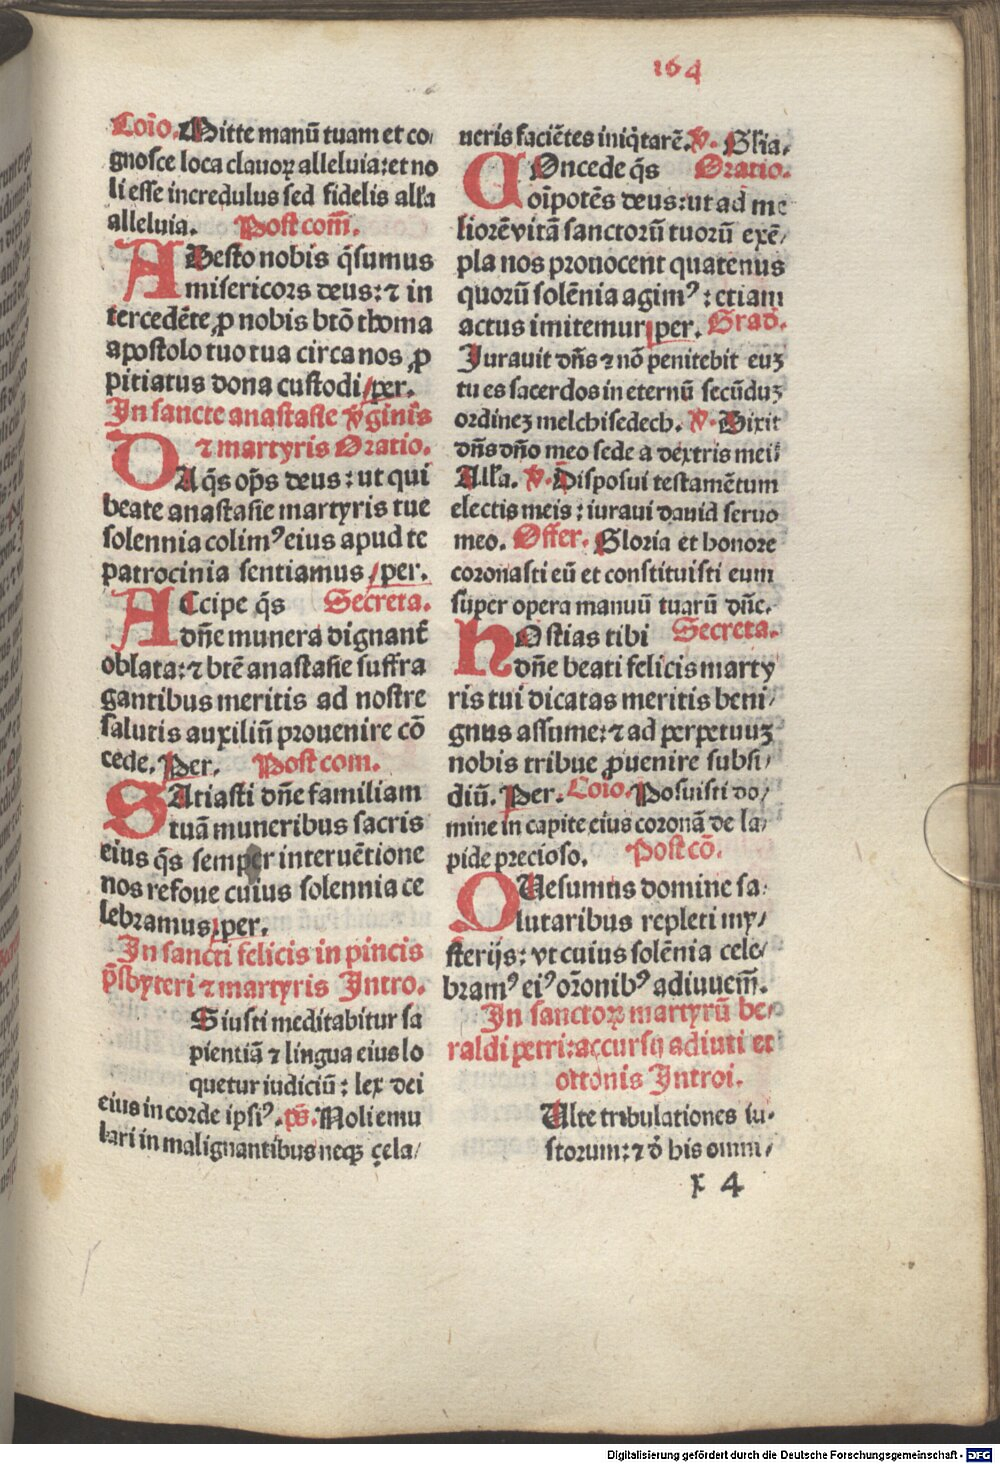 164
Coīo. Mitte manū tuam et co/
gnosce loca clauoꝝ alleluia: et no
li esse incredulus sed fidelis alľa
alleluia. Post com̄.
ADesto nobis q̄sumus
misericors deus: ⁊ in
tercedēte ꝓ nobis btō thoma
apostolo tuo tua circa nos ꝓ
pitiatus dona custodi / per.
In sancte anastasie v̄ginis
⁊ martyris Oratio.
DA q̄s op̄s deus: ut qui
beate anastasie martyris tue
solennia colimꝰ eius apud te
patrocinia sentiamus / per.
ACcipe q̄s Secreta.
dn̄e munera dignant̄
oblata: ⁊ btē anastasie suffra
gantibus meritis ad nostre
salutis auxiliū prouenire cō
cede. Per. Post com.
SAtiasti dn̄e familiam
tuā muneribus sacris
eius q̄s semper interuētione
nos refoue cuius solennia ce
lebramus / per.
In sancti felicis in pincis
p̄sbyteri ⁊ martyris Intro.
OS iusti meditabitur sa
pientiā ⁊ lingua eius lo
quetur iudiciū: lex dei
eius in corde ipsiꝰ. ps̄. Noli emu
lari in malignantibus neqꝫ zela/
ueris faciētes iniq̇tatē. ℣. Gľia.
COncede q̄s Oratio.
oīpotēs deus: ut ad me
liorē vitā sanctorū tuorū exē/
pla nos prouocent quatenus
quorū solēnia agimꝰ: etiam
actus imitemur / per. Grad̄.
Iurauit dn̄s ⁊ nō penitebit euꝫ
tu es sacerdos in eternū secūduꝫ
ordineꝫ melchisedech. ℣. Dixit
dn̄s dn̄o meo sede a dextris meis
Alľa. ℣. Disposui testamētum
electis meis: iuraui dauid seruo
meo. Offer. Gloria et honore
coronasti eū et constituisti eum
super opera manuū tuarū dn̄e.
HOstias tibi Secreta.
dn̄e beati felicis marty
ris tui dicatas meritis beni/
gnus assume: ⁊ ad perpetuuꝫ
nobis tribue ꝓuenire subsi/
diū. Per. Coīo. Posuisti do/
mine in capite eius coronā de la/
pide precioso. Post cō.
QUesumus domine sa/
lutaribus repleti my/
sterijs: vt cuius solēnia cele/
bramꝰ eiꝰ orōnibꝰ adiuuem̄.
In sanctoꝝ martyrū be/
raldi petri: accursij adiuti et
ottonis Introi.
MUlte tribulationes iu/
storum: ⁊ d̄ his omni/
x 4
Digitalisierung gefördert durch die Deutsche Forschungsgemeinschaft - DFG